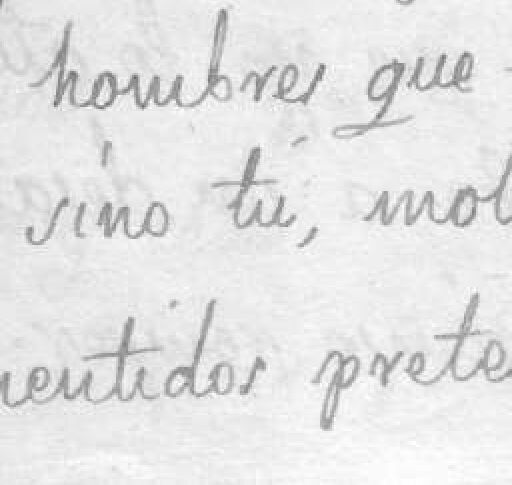 hombres que
sino tú, mol
mentidos prete